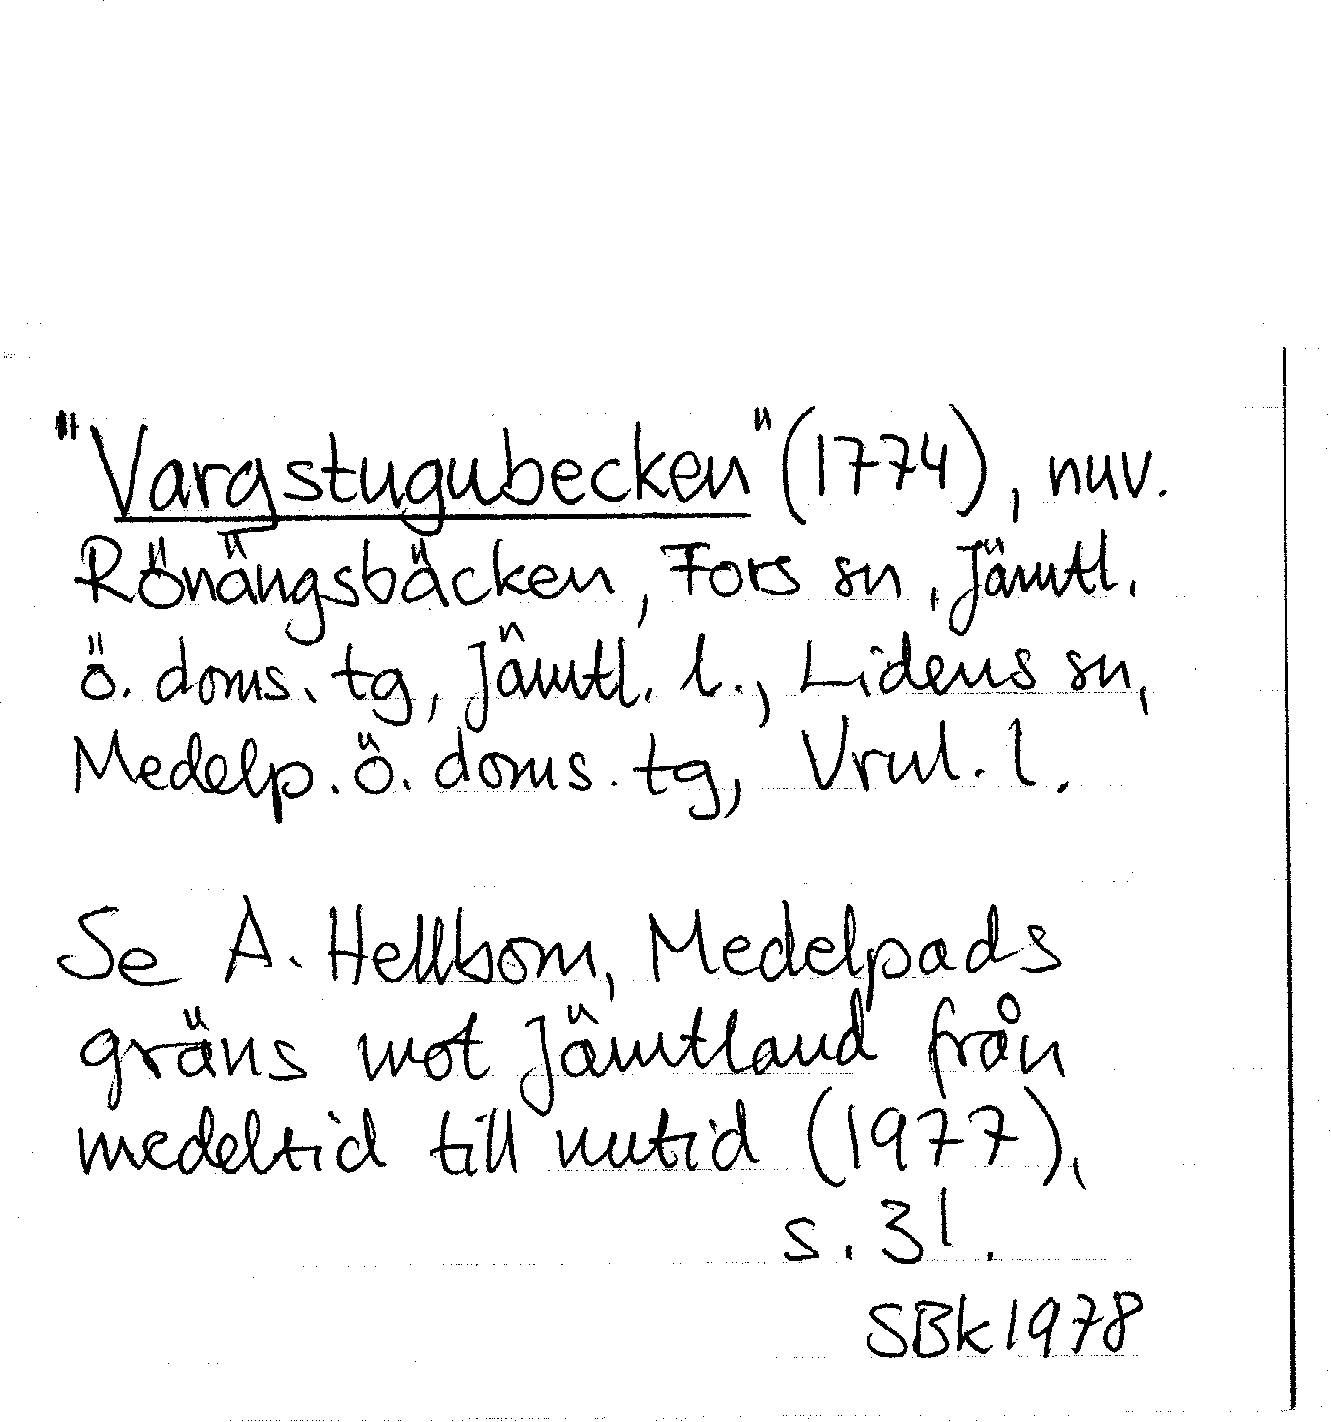 "Vargstugubecken" (1774), nuv.
Rönängsbäcken, Fors sn, Jämtl.
ö. doms. tg, Jämtl. l., Lidens sn,
Medelp. ö. doms. tg, Vrnl. l.
Se A. Hellbom, Medelpads
gräns mot Jämtland från
medeltid till nutid (1977),
s. 31.
SBk 1978